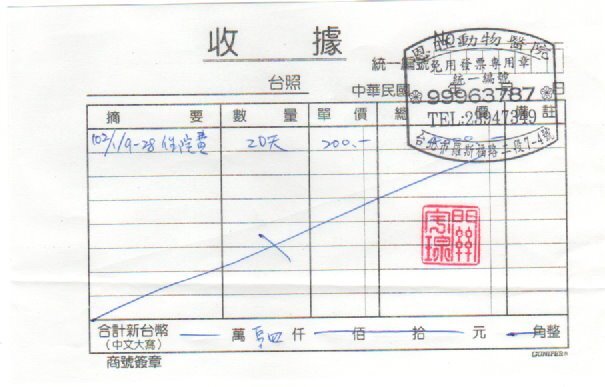 收 據
No
恩 動物醫院
免用發票專用章
統一編號
統一編號
99963787
TEL:23947349
台北市羅斯福路二段7-4號
台照 中華民國 年 月 日
摘 要 數 量 單 價 總 價 備 註
102/1/9-28 住院費 20天 200.-
合計新台幣 萬 肆 仟 佰 拾 元 角整
(中文大寫)
商號簽章